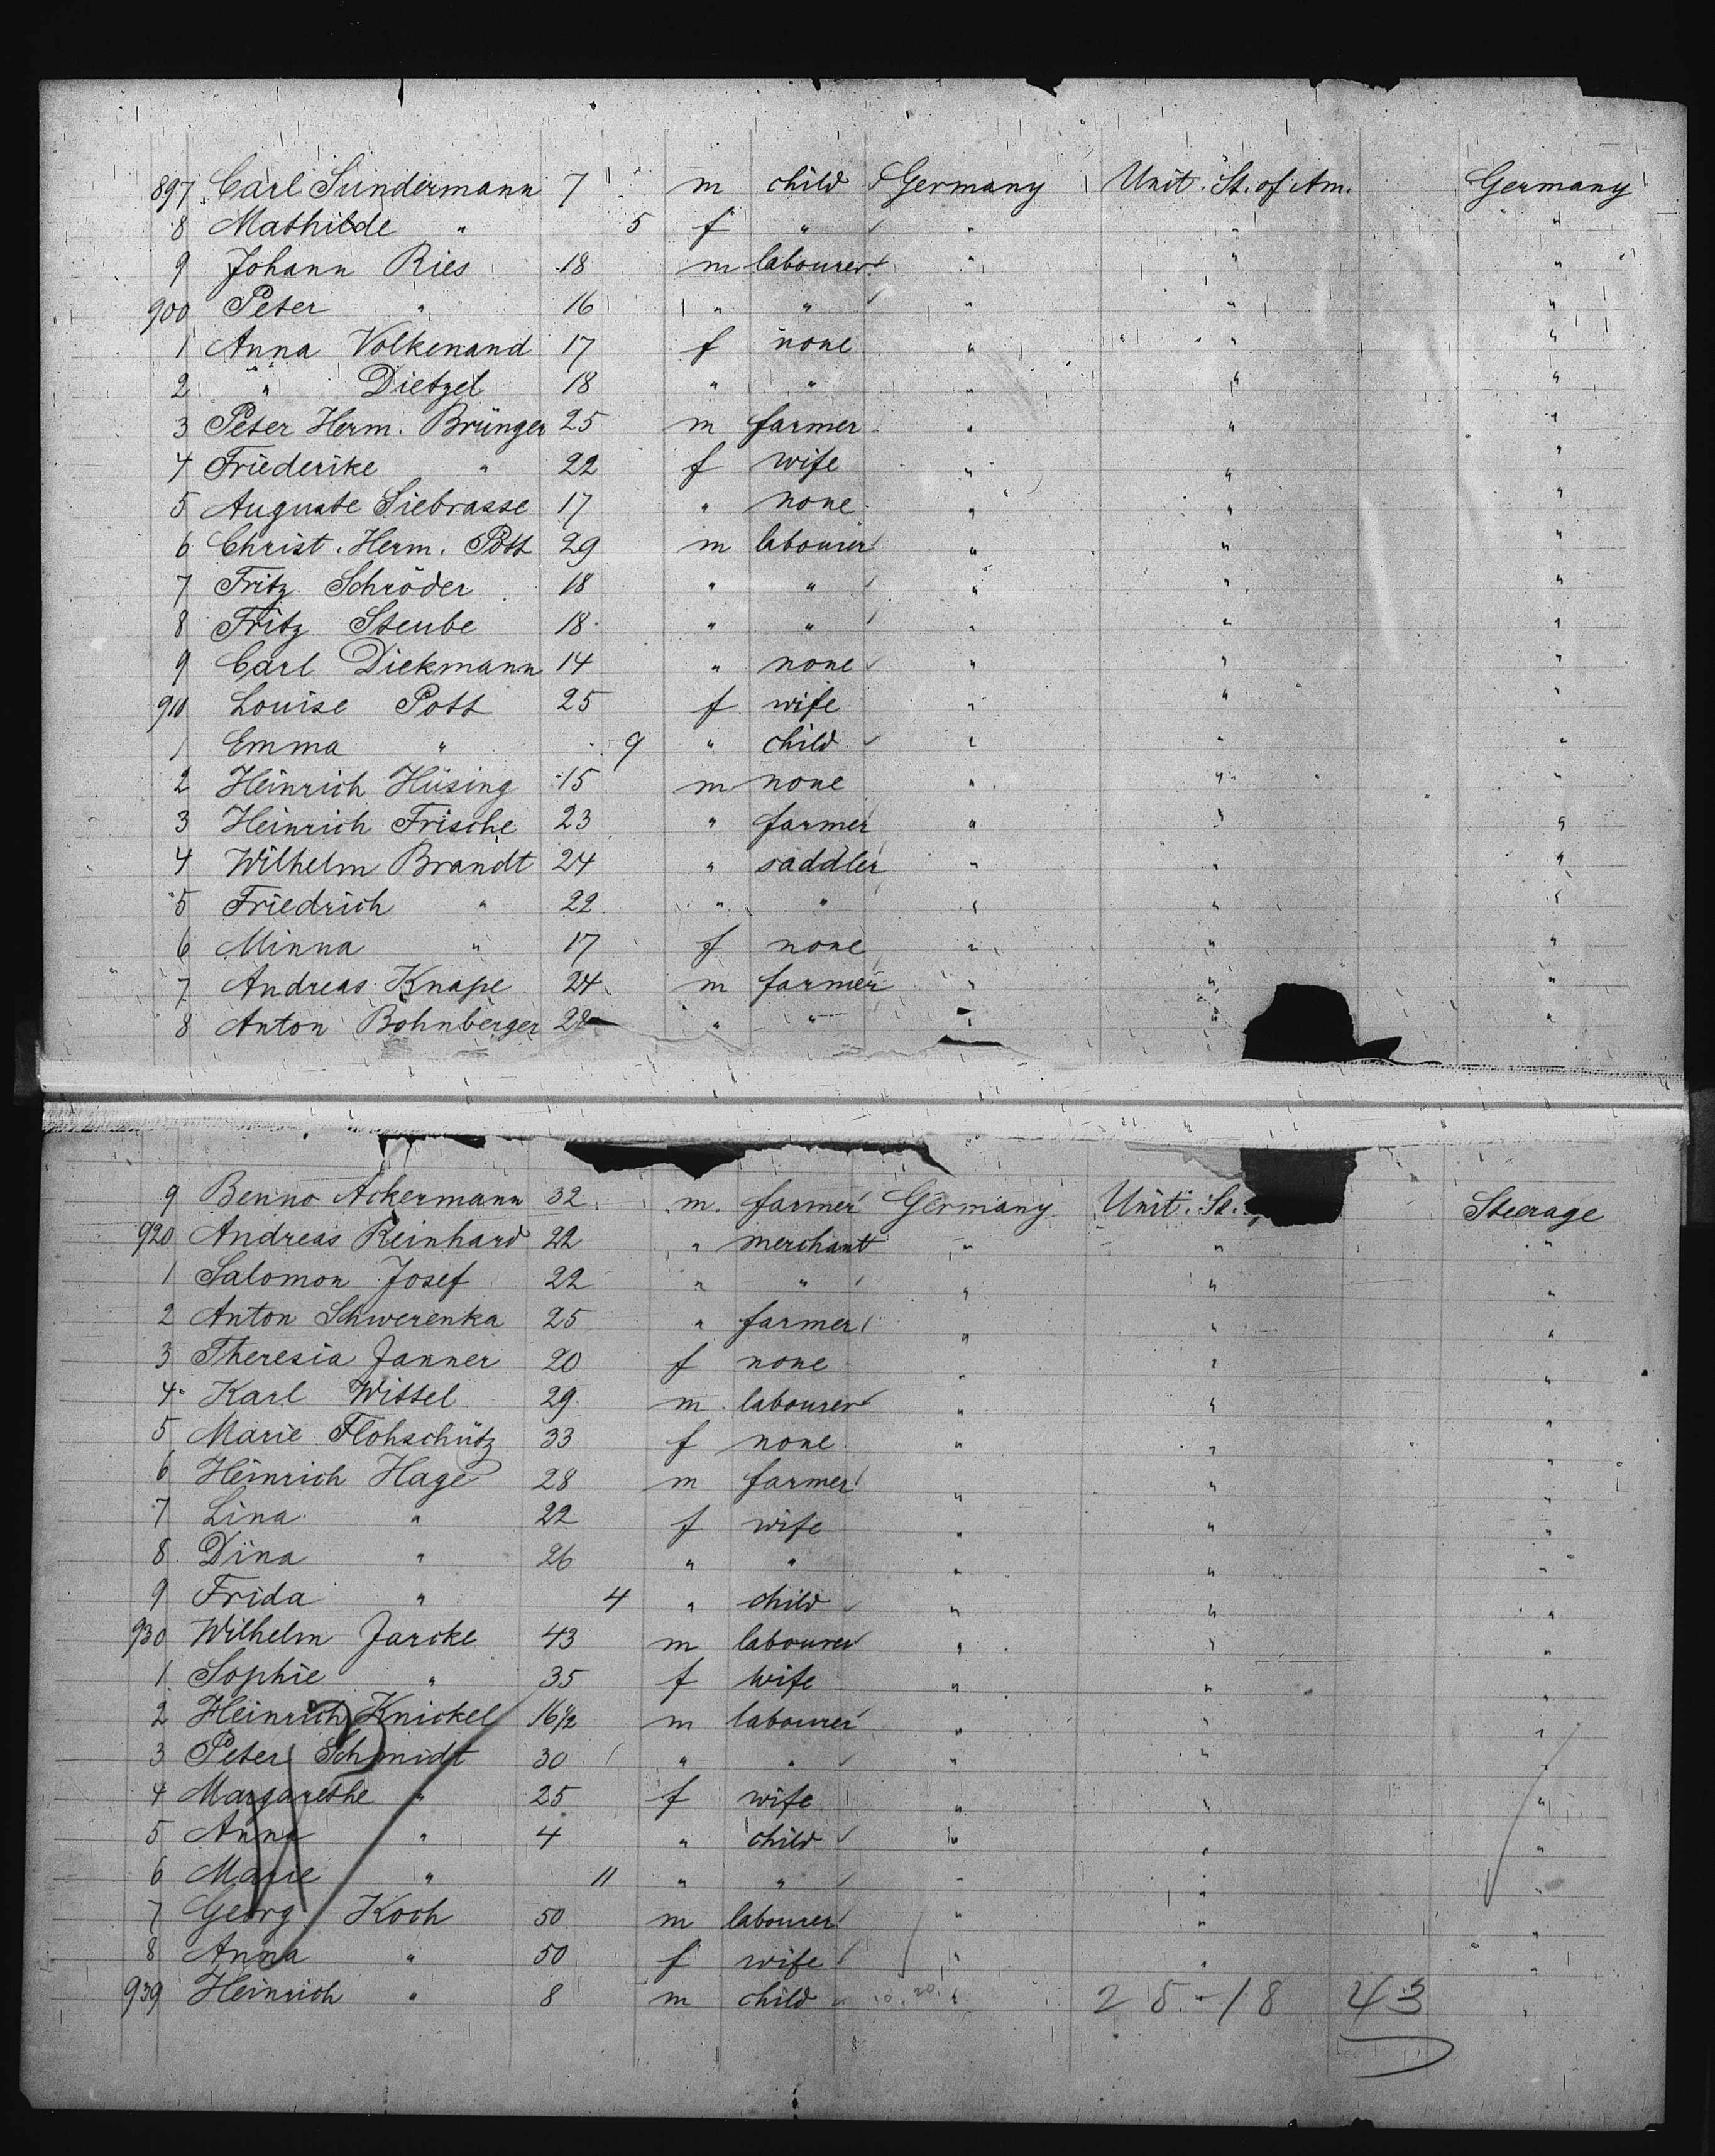 897 Carl Sundermann 7 m child Germany Unit. St. of Am. Germany
8 Mathilde " 5 f " " " "
9 Johann Ries 18 m labourer " " "
900 Peter " 16 " " " " "
1 Anna Volkenand 17 f none " " "
2 " Dietzel 18 " " " " "
3 Peter Herm. Brünger 25 m farmer " " "
4 Friederike " 22 f wife " " "
5 Auguste Siebrasse 17 " none " " "
6 Christ. Herm. Pott 29 m labourer " " "
7 Fritz Schröder 18 " " " " "
8 Fritz Steube 18 " " " " "
9 Carl Diekmann 14 " none " " "
910 Louise Pott 25 f wife " " "
1 Emma " 9 " child " " "
2 Heinrich Hüsing 15 m none " " "
3 Heinrich Frische 23 " farmer " " "
4 Wilhelm Brandt 24 " saddler " " "
5 Friedrich " 22 " " " " "
6 Minna " 17 f none " " "
7 Andreas Knape 24 m farmer " " "
8 Anton Bohnberger 28 " " " " "
9 Benno Ackermann 32 m. farmer Germany Unit. St. Steerage
920 Andreas Reinhard 22 " merchant " " "
1 Salomon Josef 22 " " " " "
2 Anton Schwerenka 25 " farmer " " "
3 Theresia Janner 20 f none " " "
4 Karl Wittel 29 m labourer " " "
5 Marie Flohschütz 33 f none " " "
6 Heinrich Hage 28 m farmer " " "
7 Lina " 22 f wife " " "
8 Dina " 26 " " " " "
9 Frida " 4 " child " " "
930 Wilhelm Jarcke 43 m labourer " " "
1 Sophie " 35 f wife " " "
2 Heinrich Knickel 16 1/2 m labourer " " "
3 Peter Schmidt 30 " " " " "
4 Margarethe " 25 f wife " " "
5 Anna " 4 " child " " "
6 Marie " 11 " " " " "
7 Georg Koch 50 m labourer " " "
8 Anna " 50 f wife " " "
939 Heinrich " 8 m child " 25-18 43 "